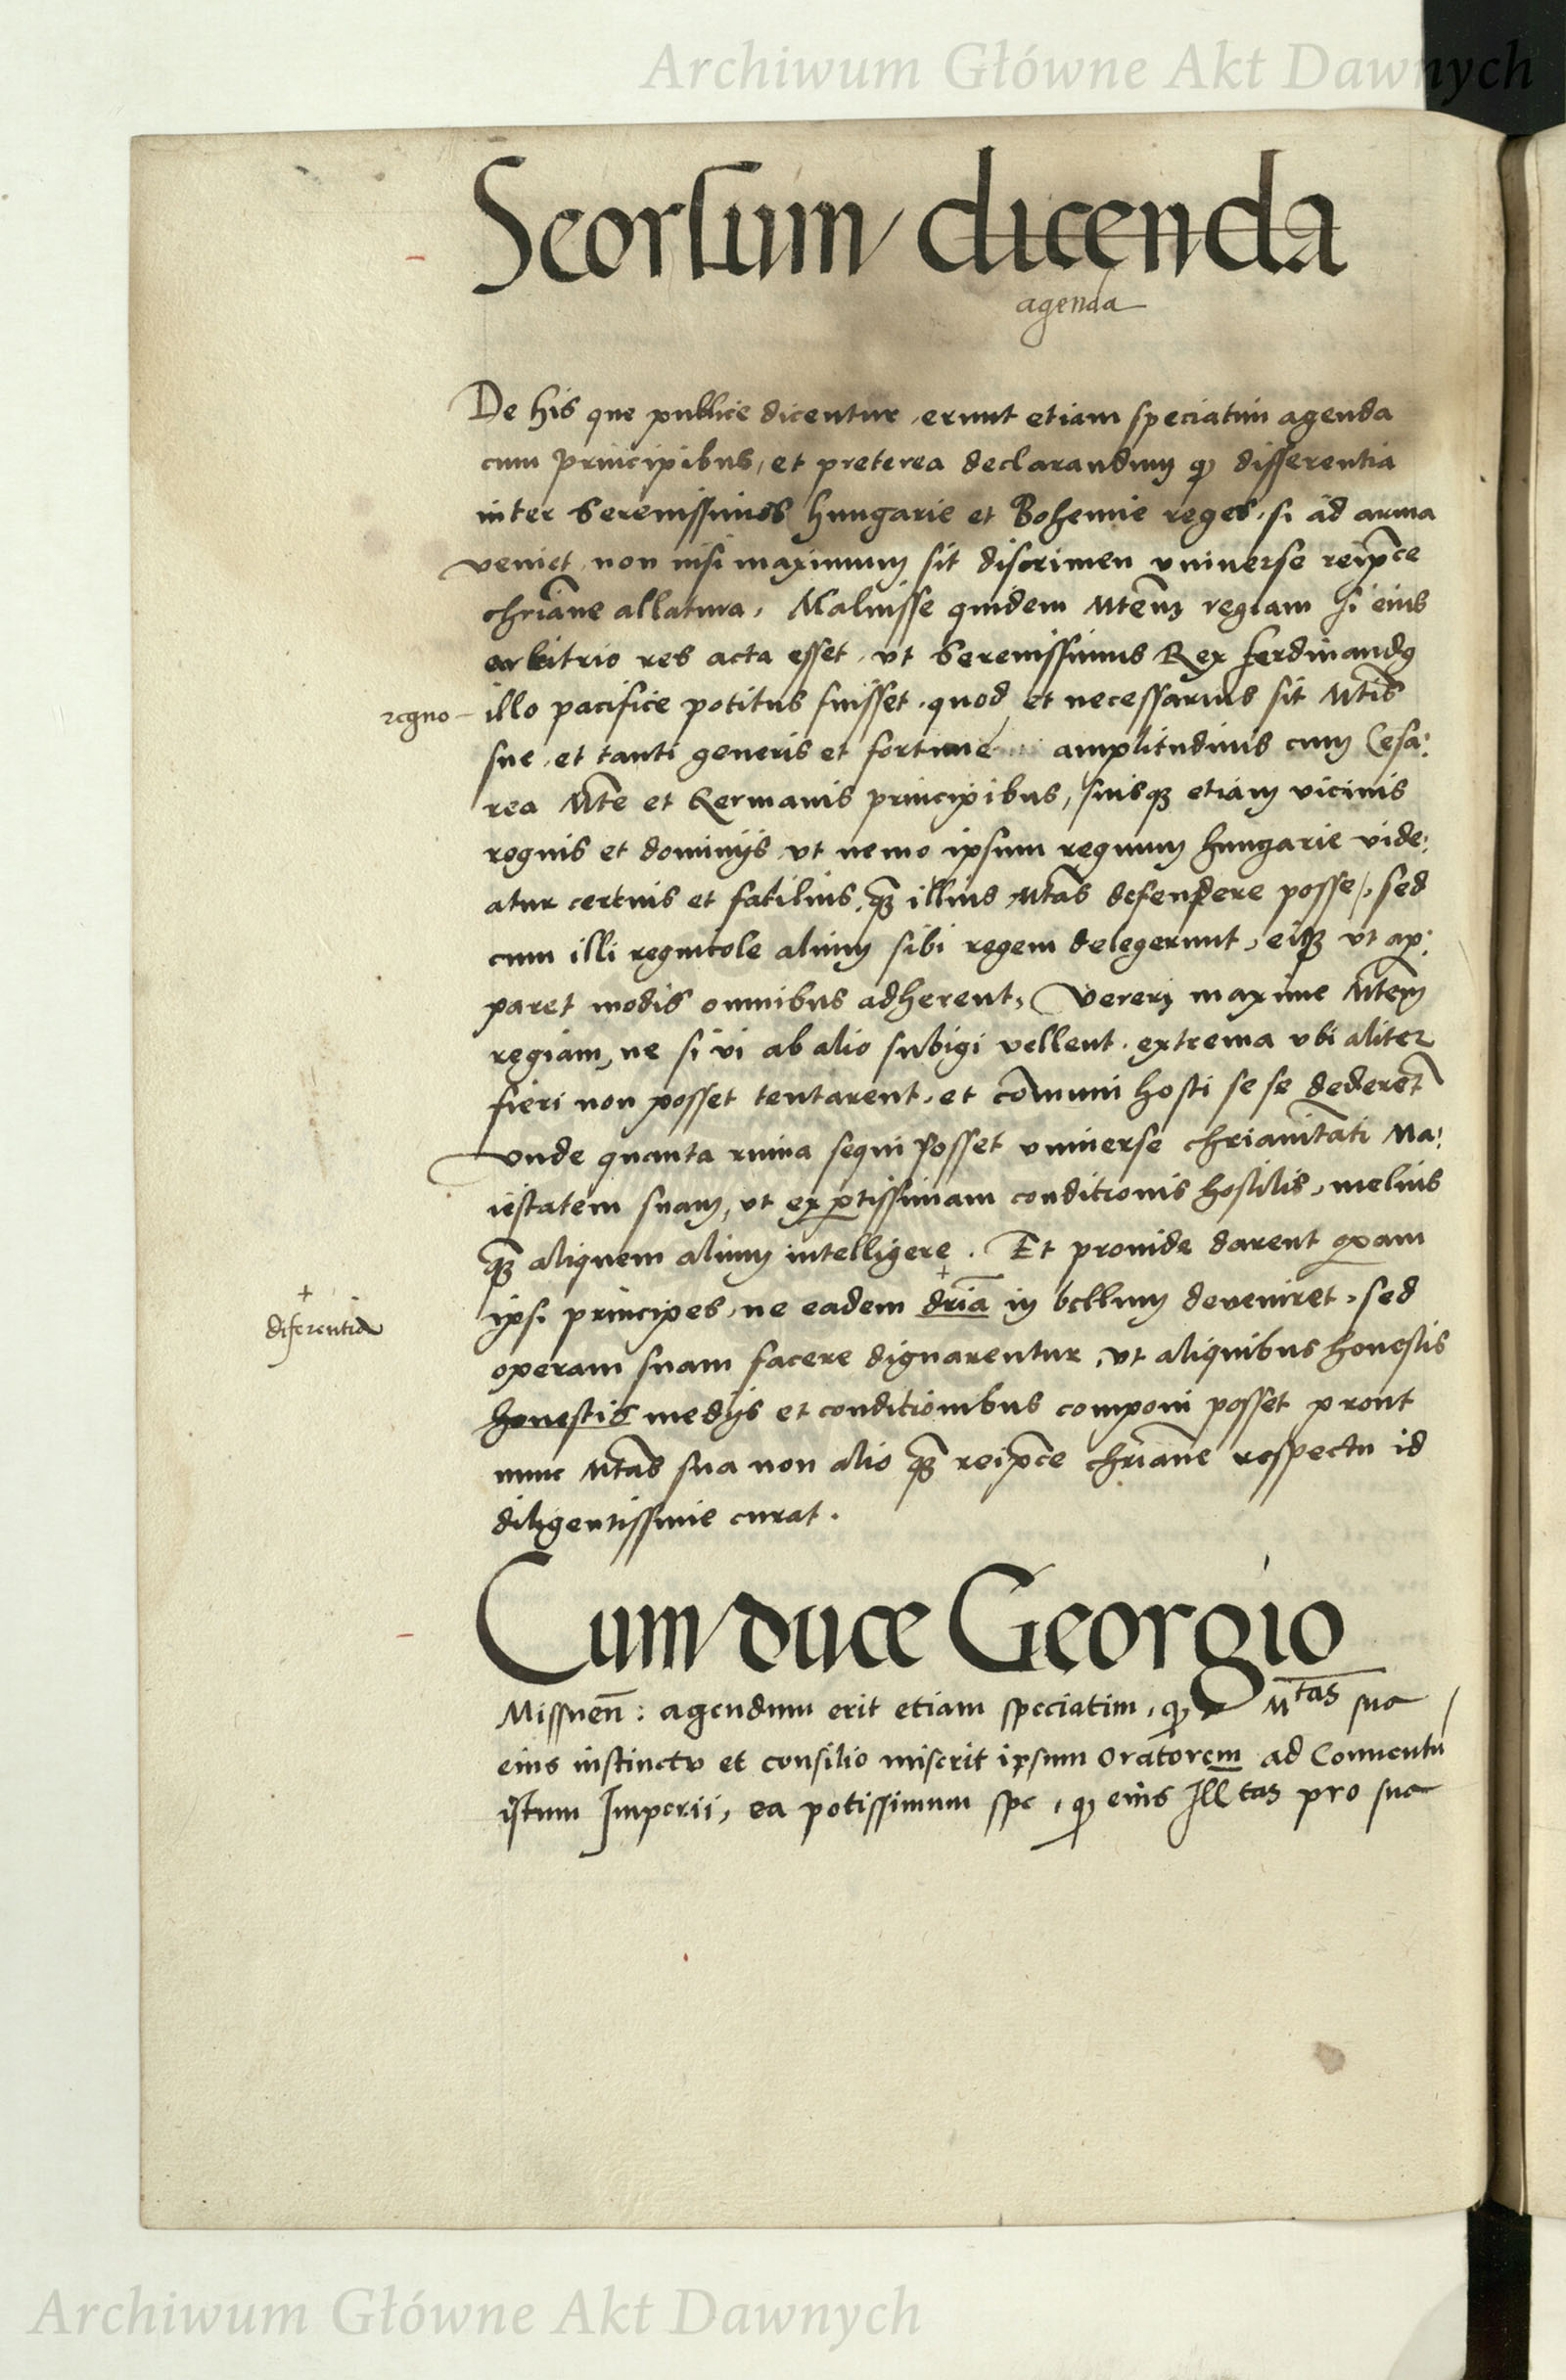 Archiwum Główne Akt Dawnych
Seorsum dicenda
agenda
De his que publice dicentur, erunt etiam speciatim agenda
cum principibus, et preterea declarandum qꝫ differentia
inter Serenissimos Hungarie et Bohemie reges, si ad arma
veniet, non nisi maximum sit discrimen universe reip̄ce
chriāne allatura, Maluisse quidem Mtem̄ regiam si eius
arbitrio res acta esset, ut Serenissimus Rex Ferdinandꝰ
regno – illo pacifice potitus fuisset, quod et necessarius sit Mt̄is
sue, et tanti generis et fortune amplitudinis cum Cesa:
rea Mt̄e et Germanis principibus, suisqꝫ etiam vicinis
regnis et dominijs, ut nemo ipsum regnum Hungarie vide:
atur certius et facilius, qꝫ̄ illius Mt̄as defendere posse, sed
cum illi regnicole alium sibi regem delegerunt, eiqꝫ ut ap:
paret modis omnibus adherent, Vereri maxime Mt̄em
regiam, ne si vi ab alio subigi vellent, extrema ubi aliter
fieri non posset tentarent, et cōmuni hosti se se dederet̄
unde quanta ruina sequi posset universe chrianitāti Ma:
iestatem suam, ut exꝑtissimam conditionis hostilis, melius
qꝫ̄ aliquem alium intelligere. Et provide darent oꝑam
ipsi principes, ne eadem dr̄ia in bellum deveniret, sed
+
diferentia
operam suam facere dignarentur, ut aliquibus honestis
honestis medijs et conditionibus componi posset prout
nunc Mt̄as sua non alio qꝫ̄ reip̄ce chriāne respectu id
diligentissime curat.
Cum duce Georgio
Missnen̄: agendum erit etiam speciatim, qꝫ Mt̄as sua
eius instinctu et consilio miserit ipsum Oratorem ad Conventū
istum Imperii, ea potissimum spe, qꝫ eius Ill̄tas pro sua
Archiwum Główne Akt Dawnych